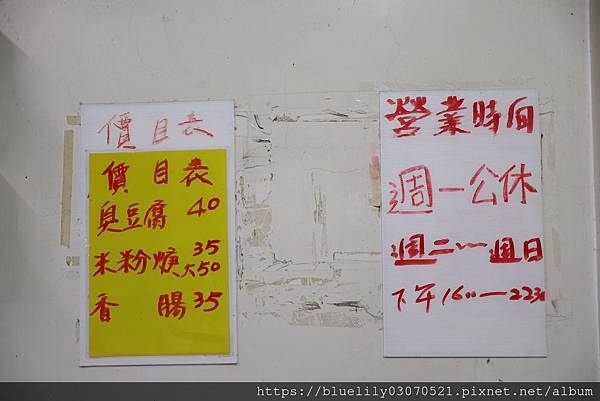 價目表
價目表
臭豆腐 40
米粉焿 35
大50
香腸 35
營業時间
週一公休
週二~週日
下午1600—2230
https://bluelily03070521.pixnet.net/album